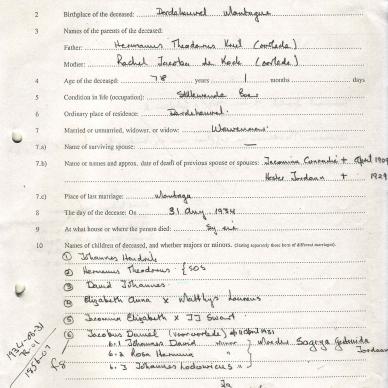 2 Birthplace of the deceased: Dordsheuvel Montague
3 Names of the parents of the deceased:
Father: Hermanus Theodorus (oorlede)
Mother: Rachel Jacoba de Kock (oorlede)
4 Age of the deceased: 78 years 1 months days
5 Condition in life (occupation): Boer
6 Ordinary place of residence: Dordsheuvel
7 Married or unmarried, widower, or widow: Wewenaar
7.a) Name of surviving spouse: —
7.b) Name or names and approx. date of death of previous spouse or spouses: Jacomina Conradie + April 1909
Hester Jordaan + 1929
7.c) Place of last marriage: Montagu
8 The day of the decease: On 31 Aug 1934
9 At what house or where the person died: Sy eie
10 Names of children of deceased, and whether majors or minors. (Stating separately those born of different marriages).
① Johannes Hendrik
② Hermanus Theodorus { SOS
③ David Johannes
④ Elizabeth Anna x Matthys Lourens
⑤ Jacomina Elizabeth x JJ Swart
⑥ Jacobus Daniel (vooroorlede) 1931
6.1 Johannes David minor } Moeder Gertruida
6.2 Rosa Hermina " Jordaan
6.3 Johannes Lodewicus "
1934-08-31